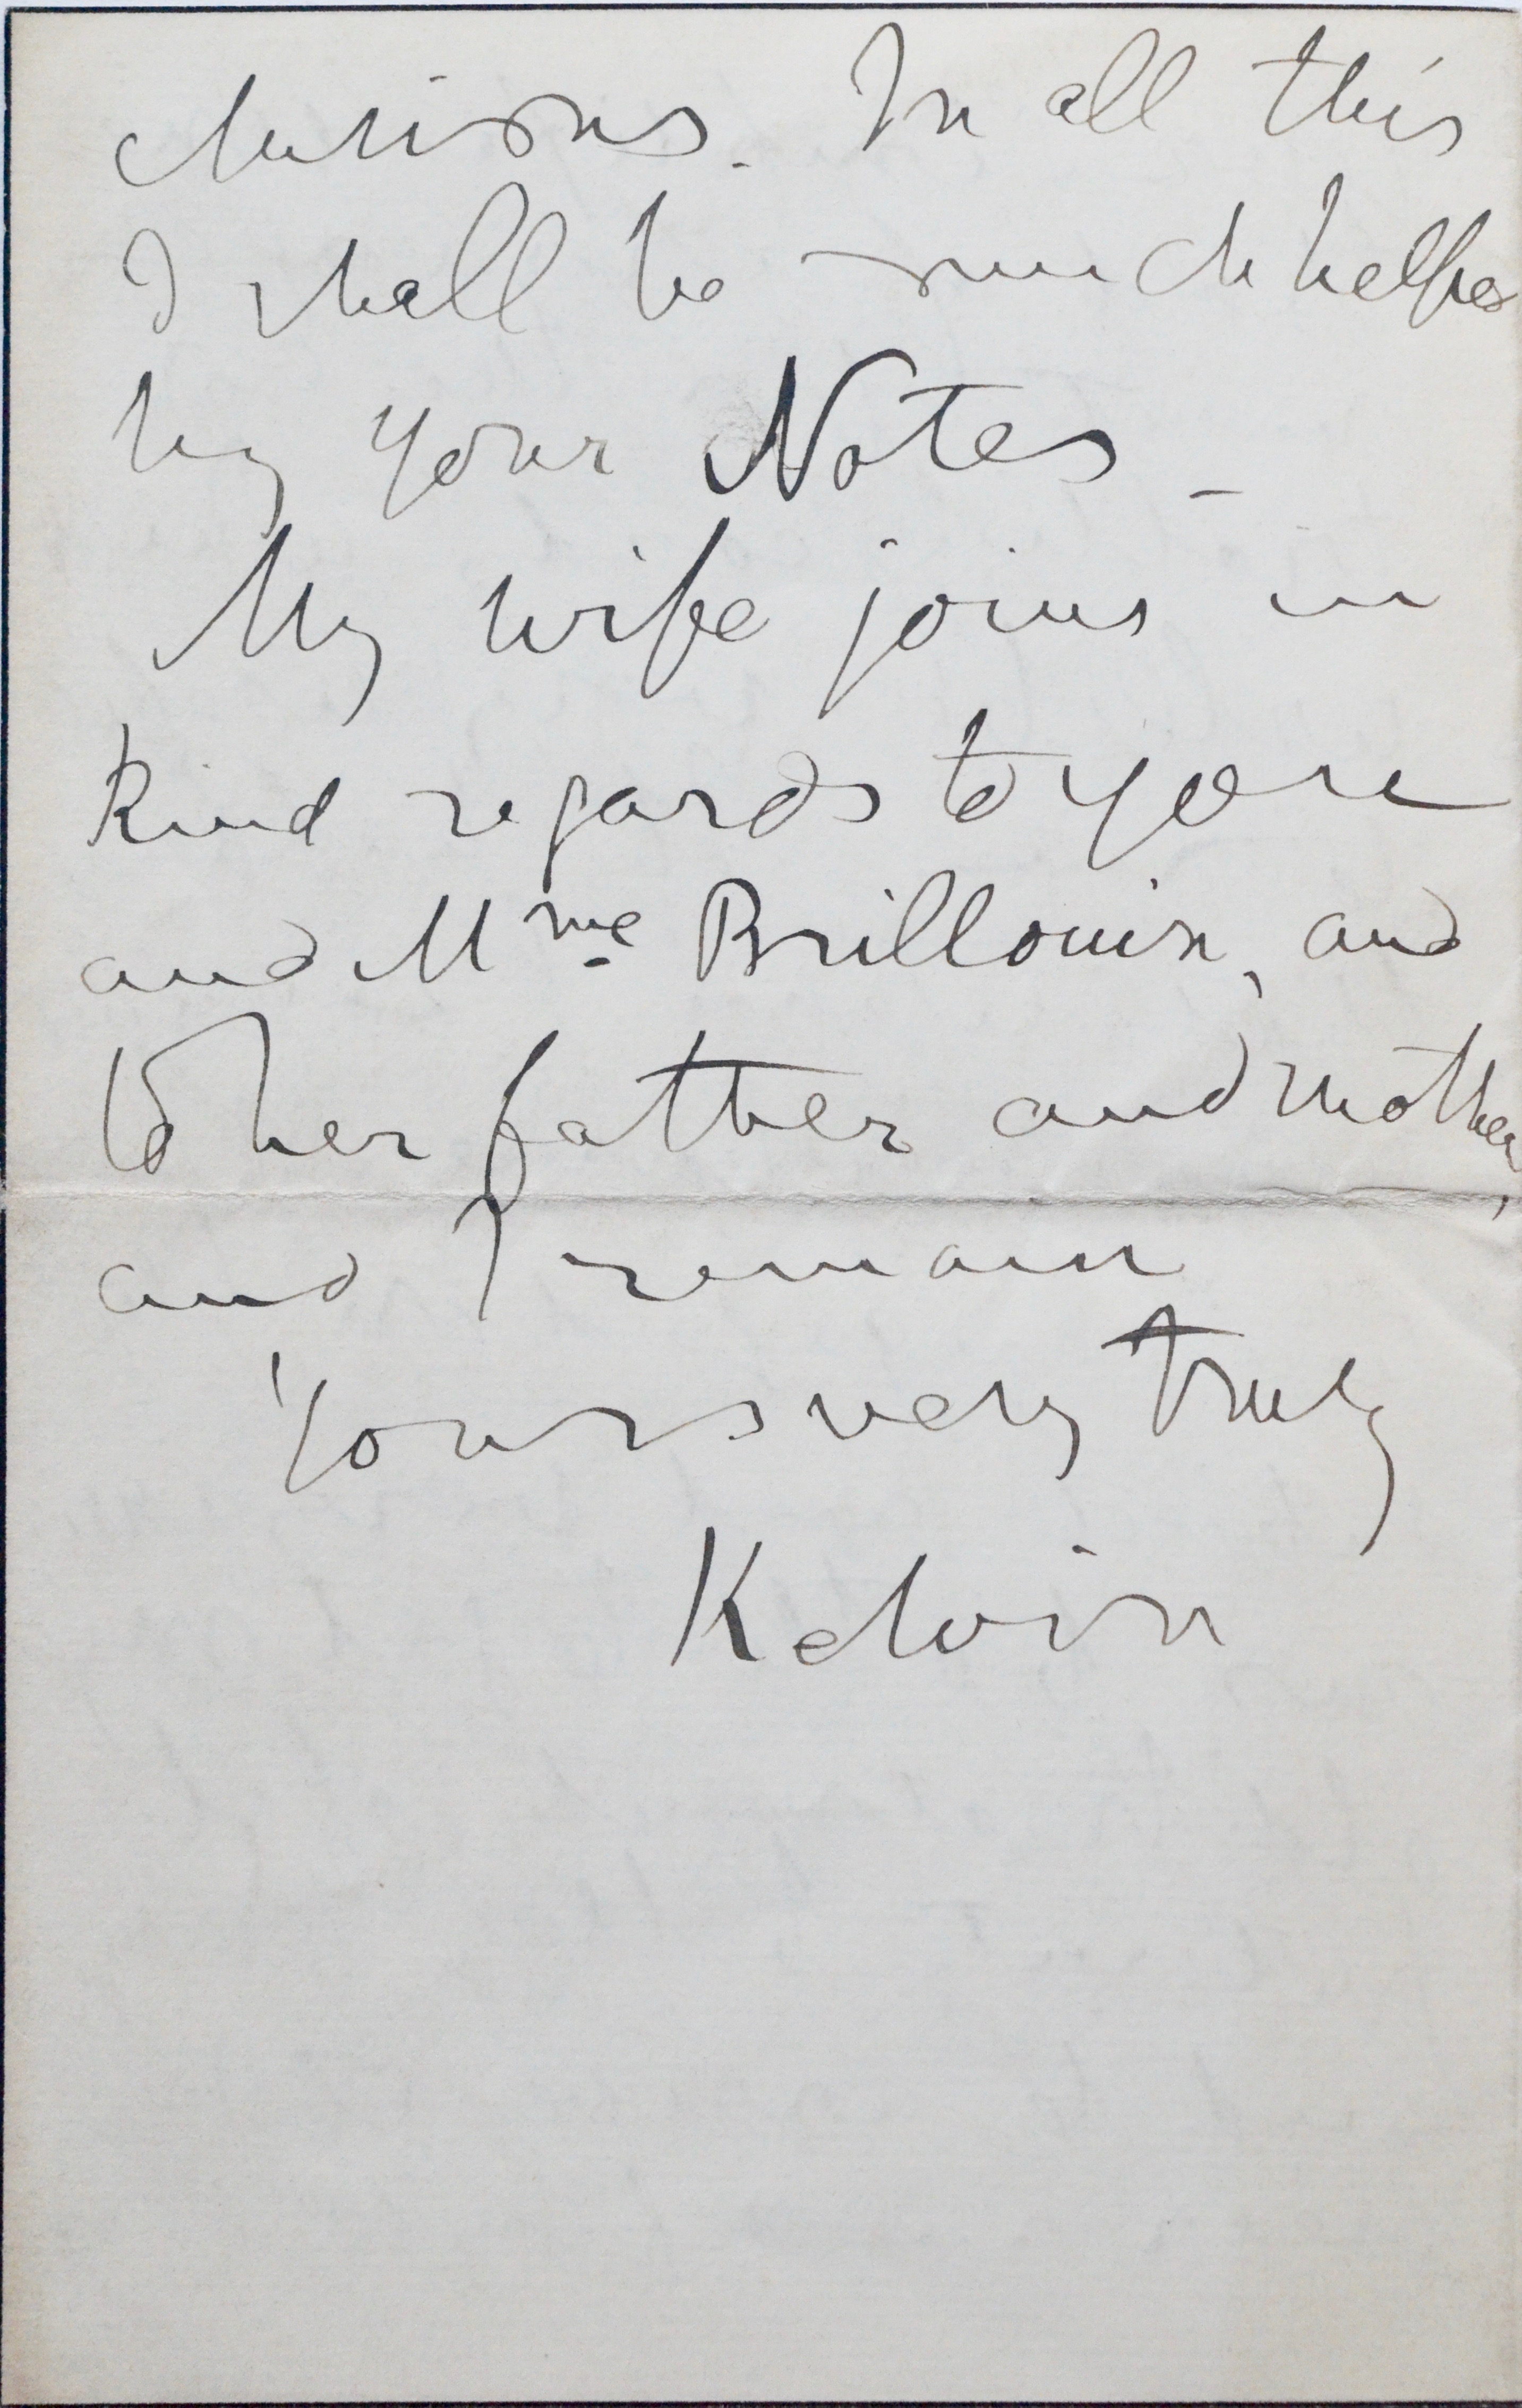 clusions. In all this
I shall be much helped
by your Notes –
My wife joins in
kind regards to you
and Mme Brillouin, and
to her father and mother,
and I remain
Yours very truly
Kelvin